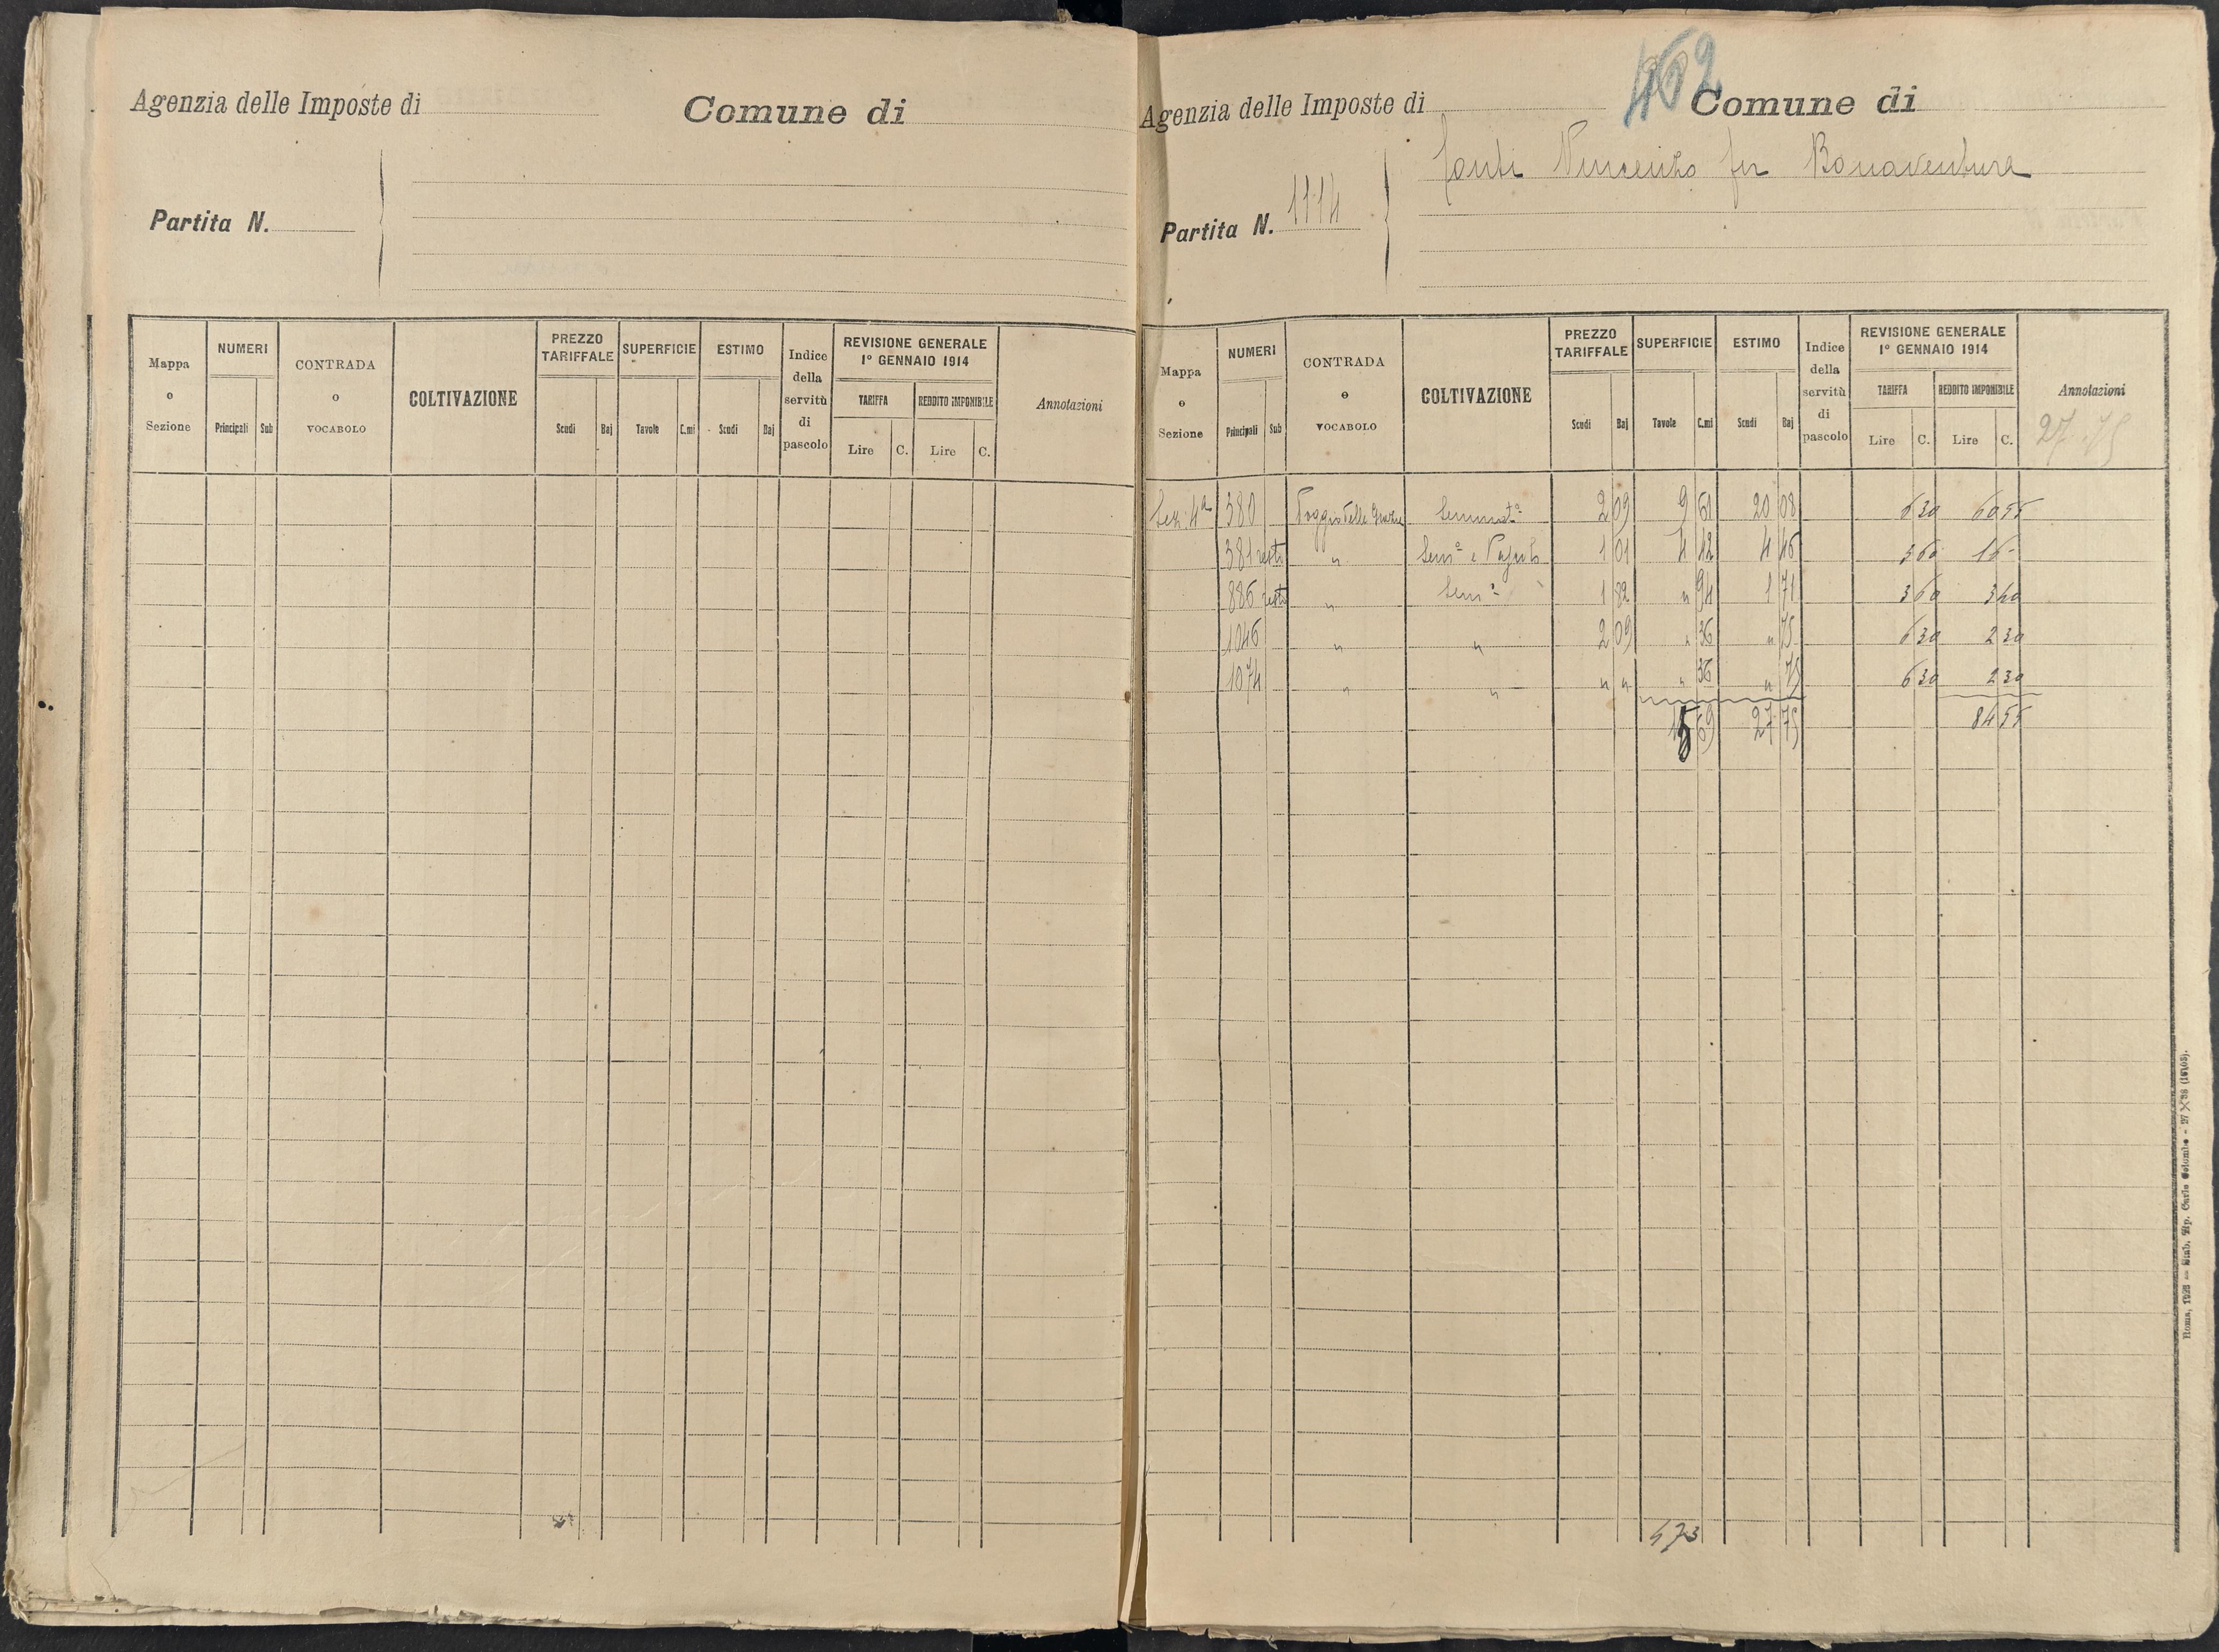 Agenzia delle Imposte di Comune di
Partita N.
Mappa o Sezione
NUMERI
Principali Sub
CONTRADA o VOCABOLO
COLTIVAZIONE
PREZZO TARIFFALE
Scudi Baj
SUPERFICIE
Tavole C.mi
ESTIMO
Scudi Baj
Indice della servitù di pascolo
REVISIONE GENERALE
1° GENNAIO 1914
TARIFFA REDDITO IMPONIBILE
Lire C. Lire C.
Annotazioni
462
Agenzia delle Imposte di Comune di
Vincenzo fu Bonaventura
Partita N. 1114
Mappa o Sezione
NUMERI
Principali Sub
CONTRADA o VOCABOLO
COLTIVAZIONE
PREZZO TARIFFALE
Scudi Baj
SUPERFICIE
Tavole C.mi
ESTIMO
Scudi Baj
Indice della servitù di pascolo
REVISIONE GENERALE
1° GENNAIO 1914
TARIFFA REDDITO IMPONIBILE
Lire C. Lire C.
Annotazioni
27.75
Sez. 4a 380 Poggio delle Grazie Seminato 2 09 9 61 20 08 6 30 60 55
381 resto " Semo e 1 01 4 42 4 46 3 60 16 -
886 resto " Semo 1 82 " 94 1 71 3 60 3 40
1046 " " 2 09 " 36 " 75 6 30 2 30
1074 " " " " " 36 " 75 6 30 2 30
15 69 27 75 84 55
473
Roma, 1928 — Stab. Tip. Carlo Colombo